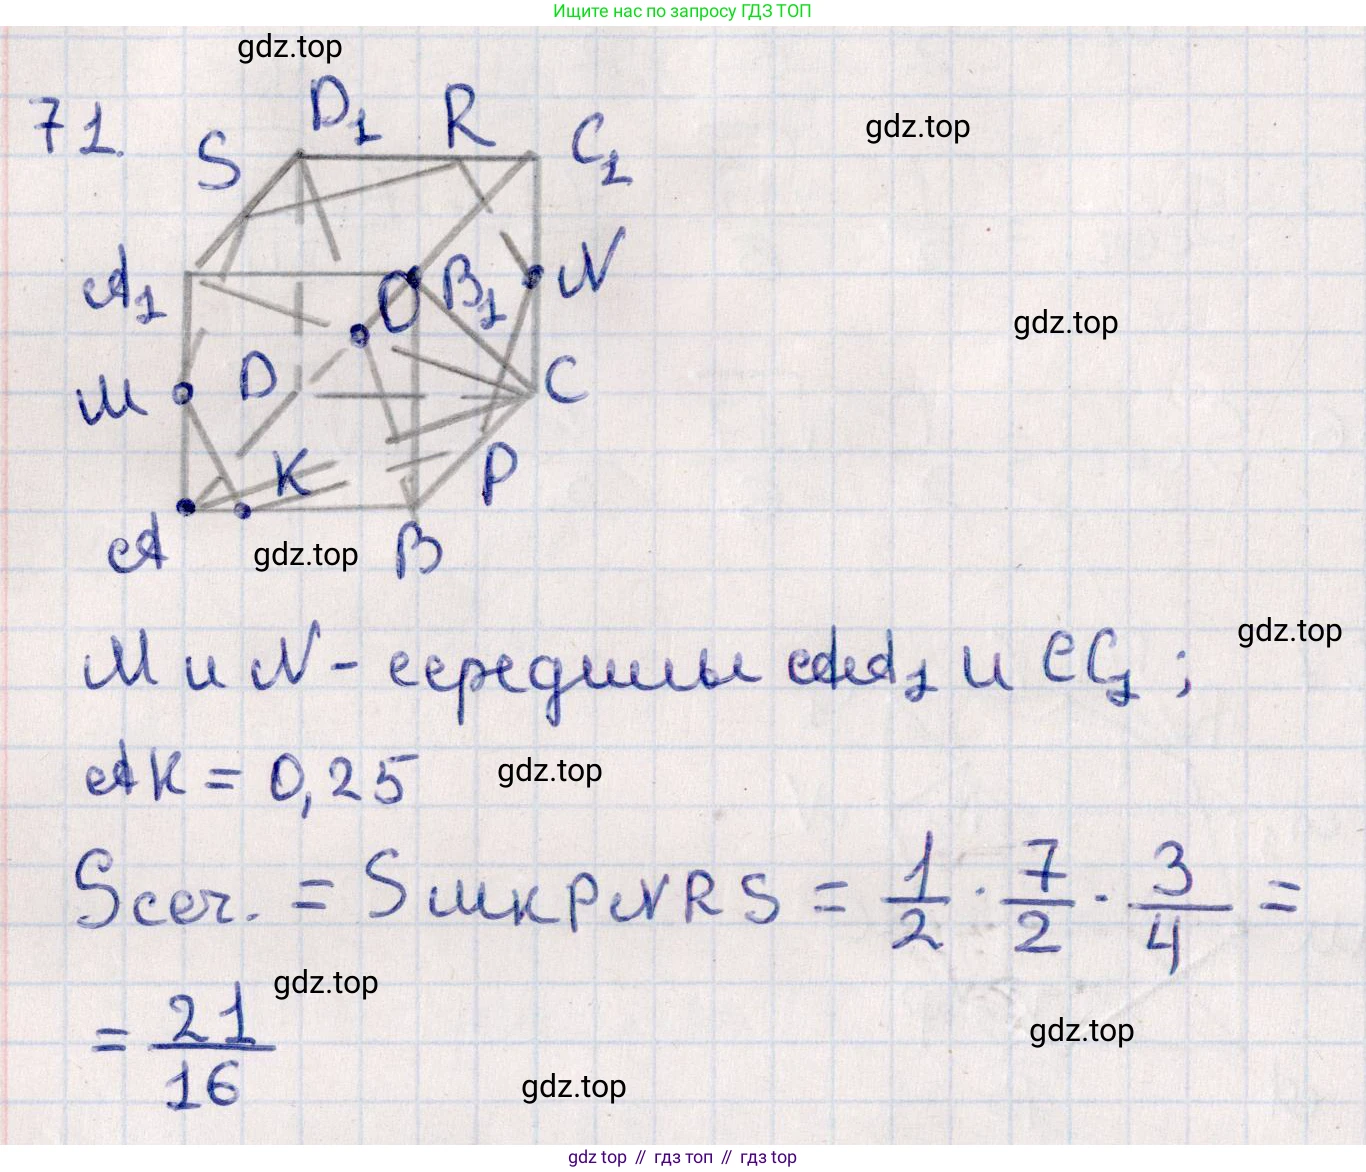 Ищите нас по запросу ГДЗ ТОП
gdz.top
71.
S D₁ R C₁
gdz.top
A₁ O B₁ N
gdz.top
M D C
K P
A B
gdz.top
M и N - середины AA₁ и CC₁ ;
gdz.top
AK = 0,25
gdz.top
Sсеч. = SMKPNRS = 1/2 · 7/2 · 3/4 =
gdz.top
= 21/16
gdz.top
gdz.top
gdz top // гдз топ // gdz top